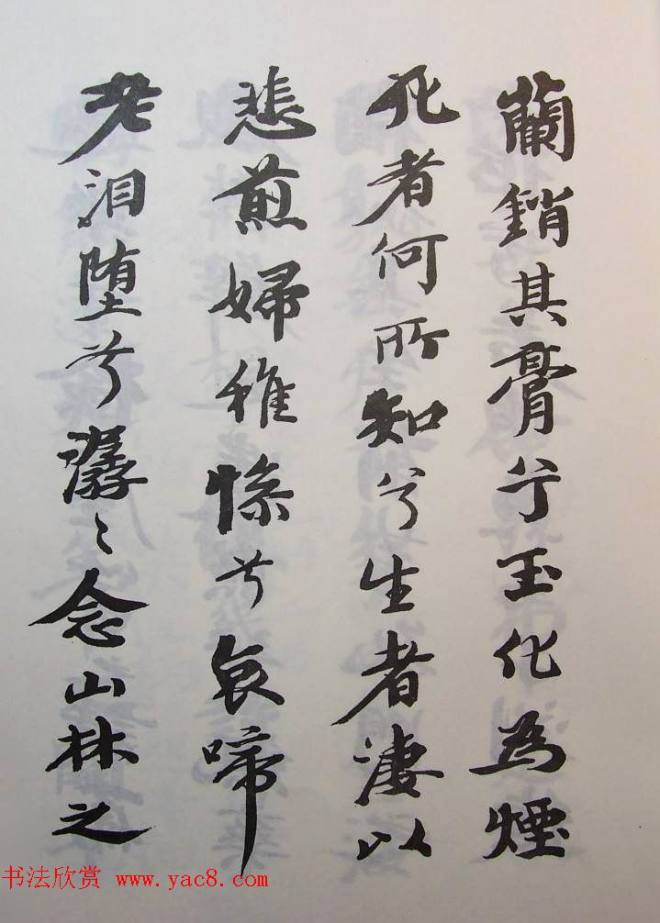 蘭銷其膏兮玉化為煙
死者何所知兮生者淒以
悲煎婦稚惸兮哀啼
老泪堕兮潺〻念山林之
书法欣赏 www.yac8.com